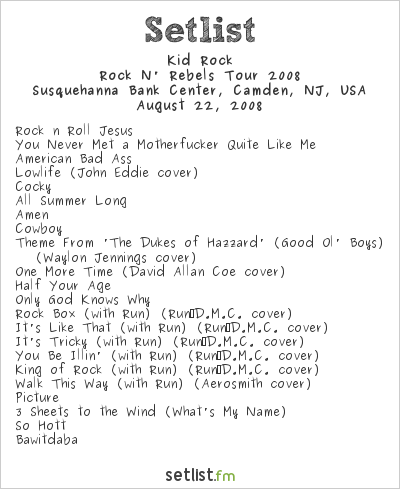 Setlist
Kid Rock
Rock N' Rebels Tour 2008
Susquehanna Bank Center, Camden, NJ, USA
August 22, 2008
Rock n Roll Jesus
You Never Met a Motherfucker Quite Like Me
American Bad Ass
Lowlife (John Eddie cover)
Cocky
All Summer Long
Amen
Cowboy
Theme From 'The Dukes of Hazzard' (Good Ol' Boys)
(Waylon Jennings cover)
One More Time (David Allan Coe cover)
Half Your Age
Only God Knows Why
Rock Box (with Run) (Run‐D.M.C. cover)
It's Like That (with Run) (Run‐D.M.C. cover)
It's Tricky (with Run) (Run‐D.M.C. cover)
You Be Illin' (with Run) (Run‐D.M.C. cover)
King of Rock (with Run) (Run‐D.M.C. cover)
Walk This Way (with Run) (Aerosmith cover)
Picture
3 Sheets to the Wind (What's My Name)
So Hott
Bawitdaba
setlist.fm